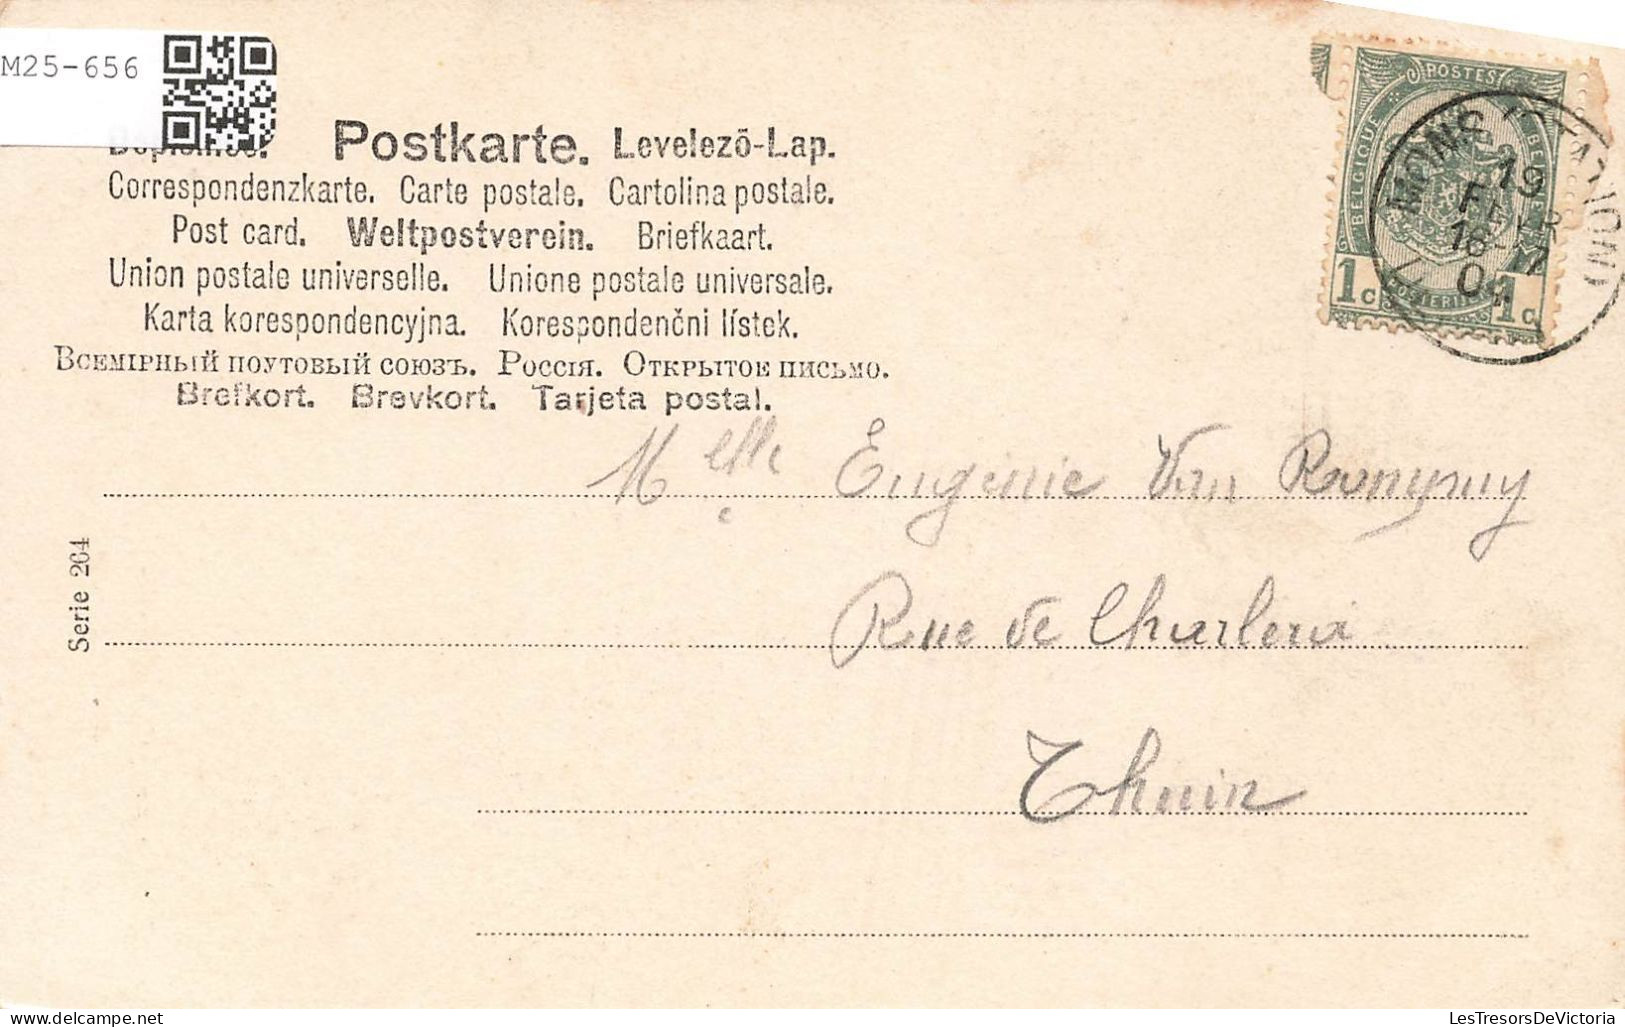 M25-656
Postkarte. Levelező-Lap.
Correspondenzkarte. Carte postale. Cartolina postale.
Post card. Weltpostverein. Briefkaart.
Union postale universelle. Unione postale universale.
Karta korespondencyjna. Korespondenční lístek.
Всемірный поутовый союзъ. Россія. Открытое письмо.
Brefkort. Brevkort. Tarjeta postal.
POSTES
BELGIQUE
1c 1c
MONS (STATION)
19
FEVR
16-17
Melle Eugénie Van
Rue de Charleroi
Thuin
Serie 264
Delcampe.net
LesTresorsDeVictoria